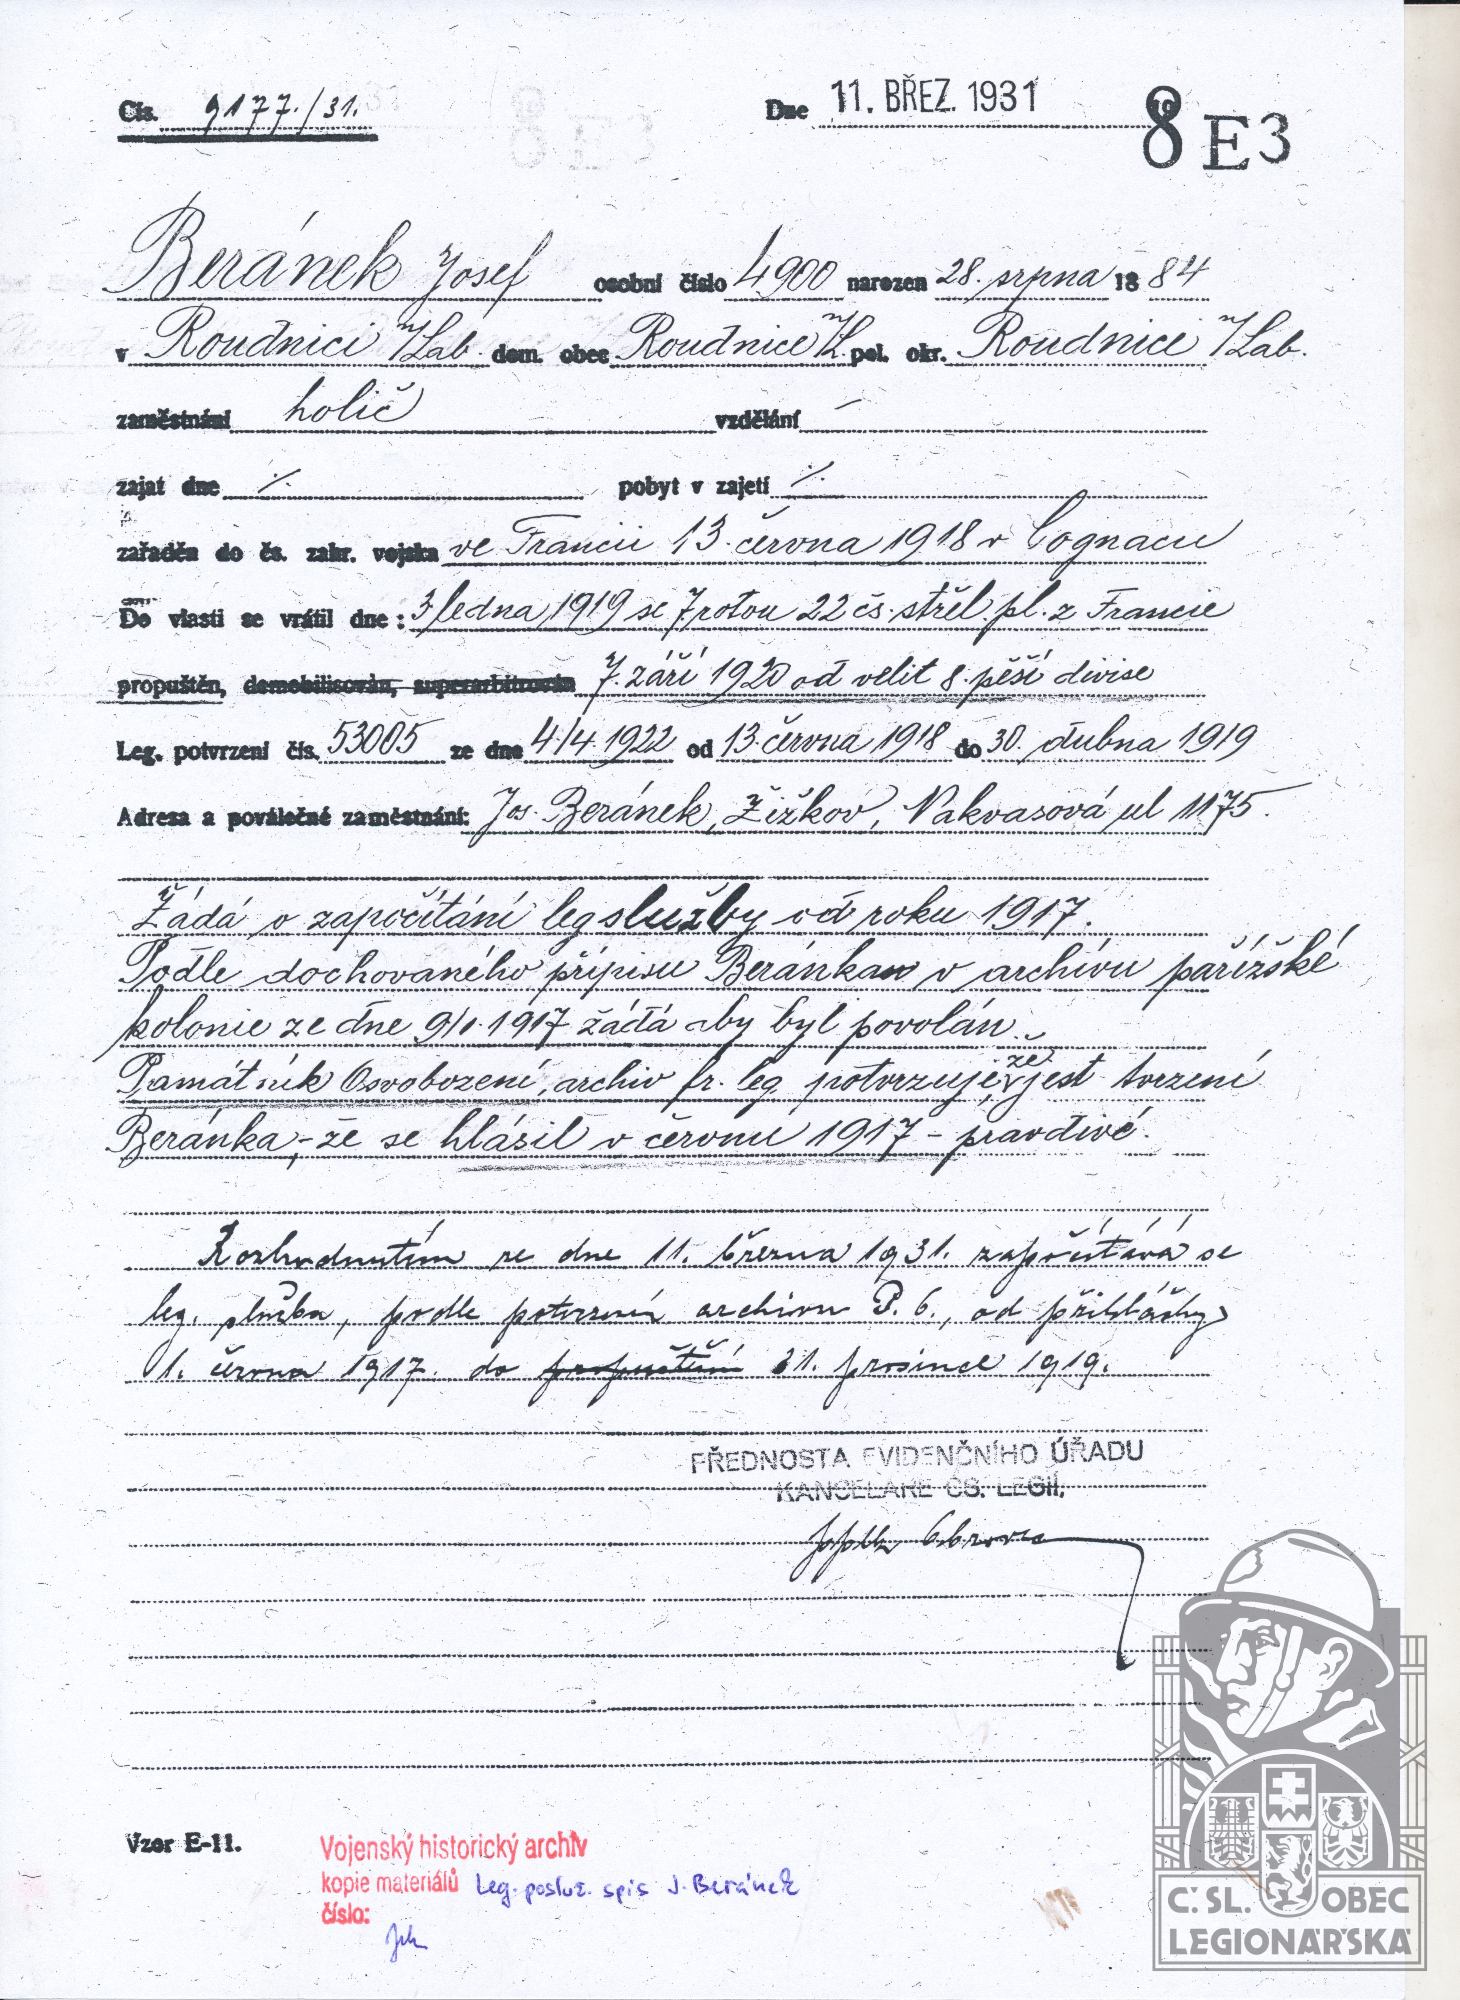 Čís. 9177./31. Dne 11. BŘEZ. 1931
8 E3
Beránek Josef osobní číslo 4900 narozen 28. srpna 1884
v Roudnici n/Lab. dom. obec Roudnice n/L. pol. okr. Roudnice n/Lab.
zaměstnání holič vzdělání –
zajat dne ·/. pobyt v zajetí ·/.
zařaděn do čs. zahr. vojska ve Francii 13. června 1918 v Cognacu
Do vlasti se vrátil dne: 3. ledna 1919 se 7. rotou 22 čs. střel. pl. z Francie
propuštěn, demobilisován, superarbitrován 7. září 1920 od velit 8. pěší divise
Leg. potvrzení čís. 53005 ze dne 4/4. 1922 od 13. června 1918 do 30. dubna 1919
Adresa a poválečné zaměstnání: Jos. Beránek, Žižkov, Vakvasová ul 1175.
Žádá o započítání leg služby od roku 1917.
Podle dochovaného přípisu Beránka v archivu pařížské
kolonie ze dne 9/ 1917 žádá aby byl povolán.
Památník Osvobození, archiv fr. leg. potvrzuje, že jest tvrzení
Beránka, – že se hlásil v červnu 1917 – pravdivé.
Rozhodnutím ze dne 11. března 1931. započítává se
leg. služba, podle potvrzení archivu P. O., od přihlášky
1. června 1917. do propuštění 31. prosince 1919.
PŘEDNOSTA EVIDENČNÍHO ÚŘADU
KANCELÁŘE ČS. LEGIÍ.
Vzor E-11.
Vojenský historický archiv
kopie materiálů Leg. posluž. spis J. Beránek
číslo:
Č. SL. OBEC
LEGIONÁŘSKÁ